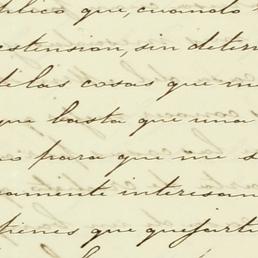 blico que, cuando
estension, sin deter
de las cosas que m
que basta que una
no para que me s
camente interesan
tienes que quejarte